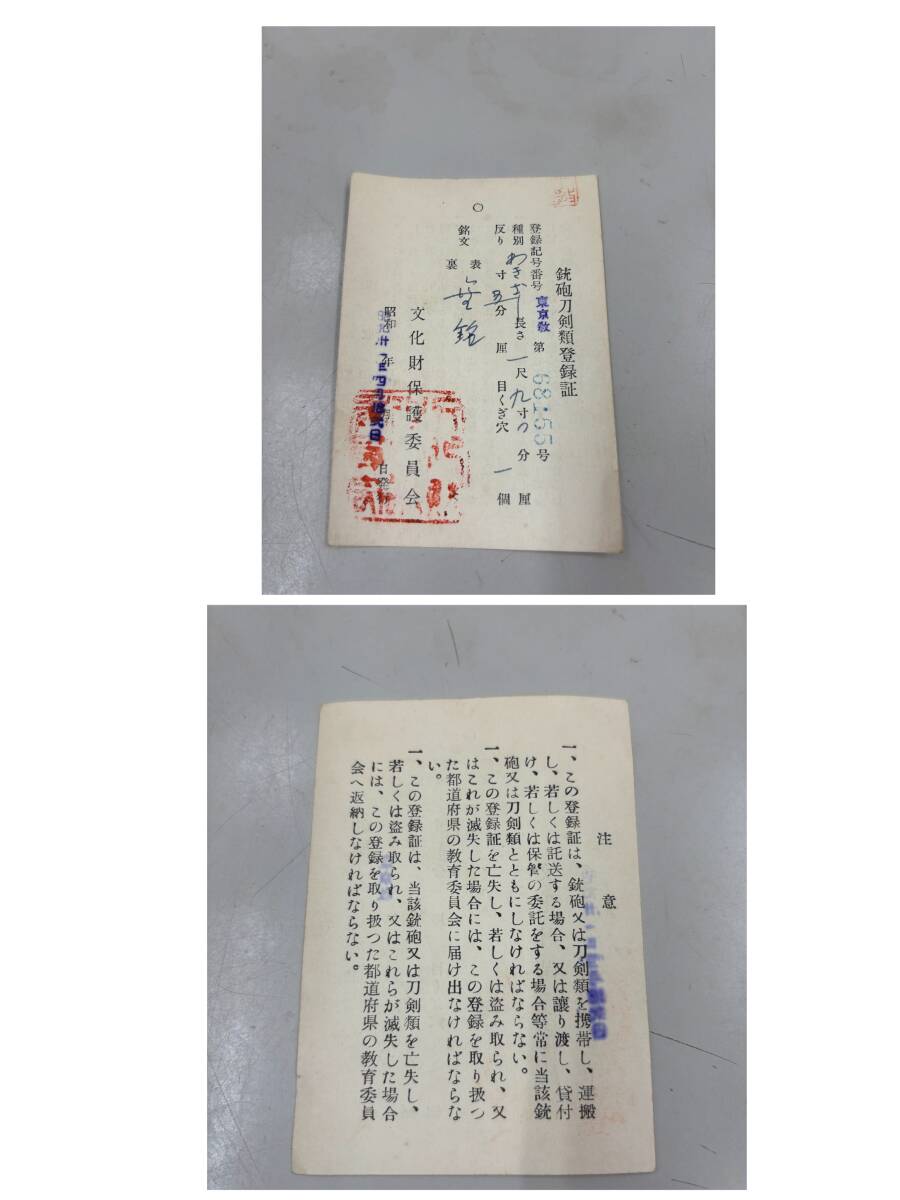 銃砲刀剣類登録証
登録記号番号 東京教 第 68155 号
種別 わきざし 長さ 一尺九寸 分 厘
反り 寸 五分 厘 目くぎ穴 一個
銘文 表 無銘
裏
文化財保護委員会
昭和 年 月 日
注意
一、この登録証は、銃砲又は刀剣類を携帯し、運搬
し、若しくは託送する場合、又は譲り渡し、貸付
け、若しくは保管の委託をする場合等常に当該銃
砲又は刀剣類とともにしなければならない。
一、この登録証を亡失し、若しくは盗み取られ、又
はこれが滅失した場合には、この登録を取り扱つ
た都道府県の教育委員会に届け出なければならな
い。
一、この登録証は、当該銃砲又は刀剣類を亡失し、
若しくは盗み取られ、又はこれらが滅失した場合
には、この登録を取り扱つた都道府県の教育委員
会へ返納しなければならない。